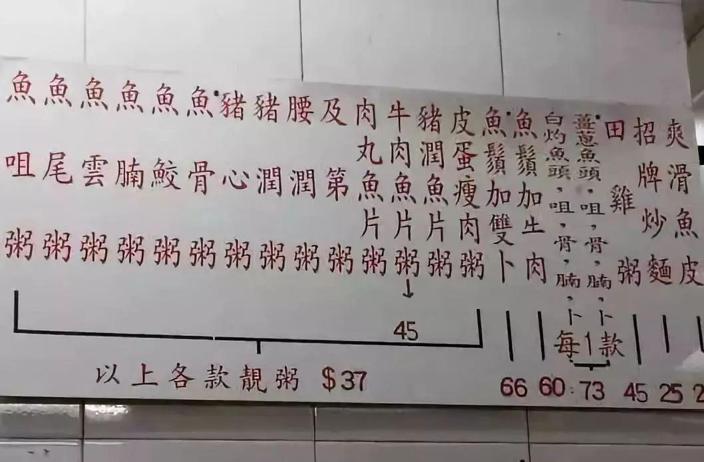 魚咀粥
魚尾粥
魚雲粥
魚腩粥
魚鮫粥
魚骨粥
豬心粥
豬潤粥
腰潤粥
及第粥
肉丸魚片粥
牛肉魚片粥
豬潤魚片粥
皮蛋瘦肉粥
魚鬚加雙卜
魚鬚加生肉
白灼魚頭，咀，骨，腩，卜
薑蔥魚頭，咀，骨，腩，卜
田雞粥
招牌炒麵
爽滑魚皮
45
每1款
以上各款靚粥 $37
66 60:73 45 25